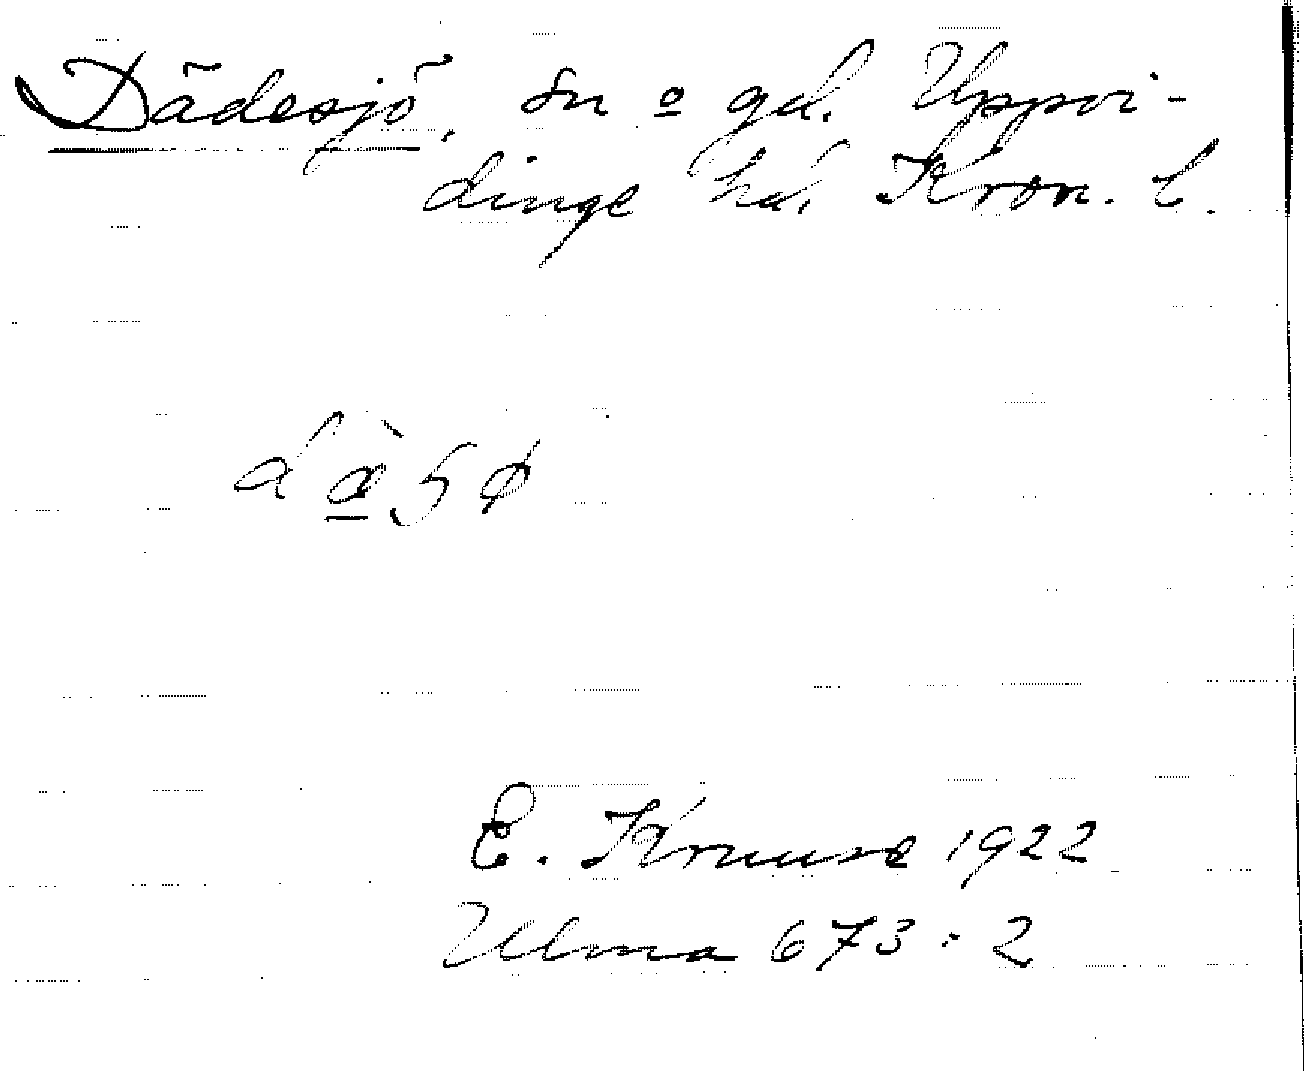 Dädesjö, sn o gd. Uppvi-
dinge hd. Kron. l.
dæ̀ɧø
E. Kruuse 1922
Ulma 673:2